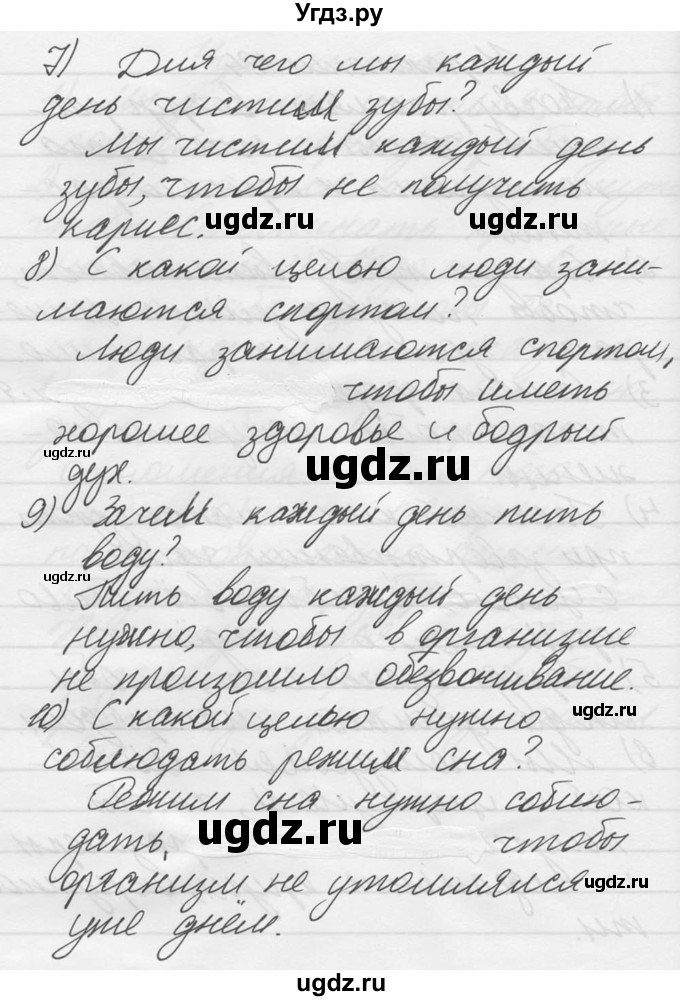 Угдз.ру
7) Для чего мы каждый
день чистим зубы?
Мы чистим каждый день
зубы, чтобы не получить
кариес.
ugdz.ru ugdz.ru
8) С какой целью люди зани-
маются спортом?
Люди занимаются спортом,
чтобы иметь
хорошее здоровье и бодрый
ugdz.ru
дух.
ugdz.ru
9) Зачем каждый день пить
воду?
ugdz.ru
Пить воду каждый день
нужно, чтобы в организме
не произошло обезвоживание.
10) С какой целью нужно
ugdz.ru
соблюдать режим сна?
Режим сна нужно соблю-
дать, чтобы
ugdz.ru
организм не утомлялся
ugdz.ru
уже днём.
ugdz.ru